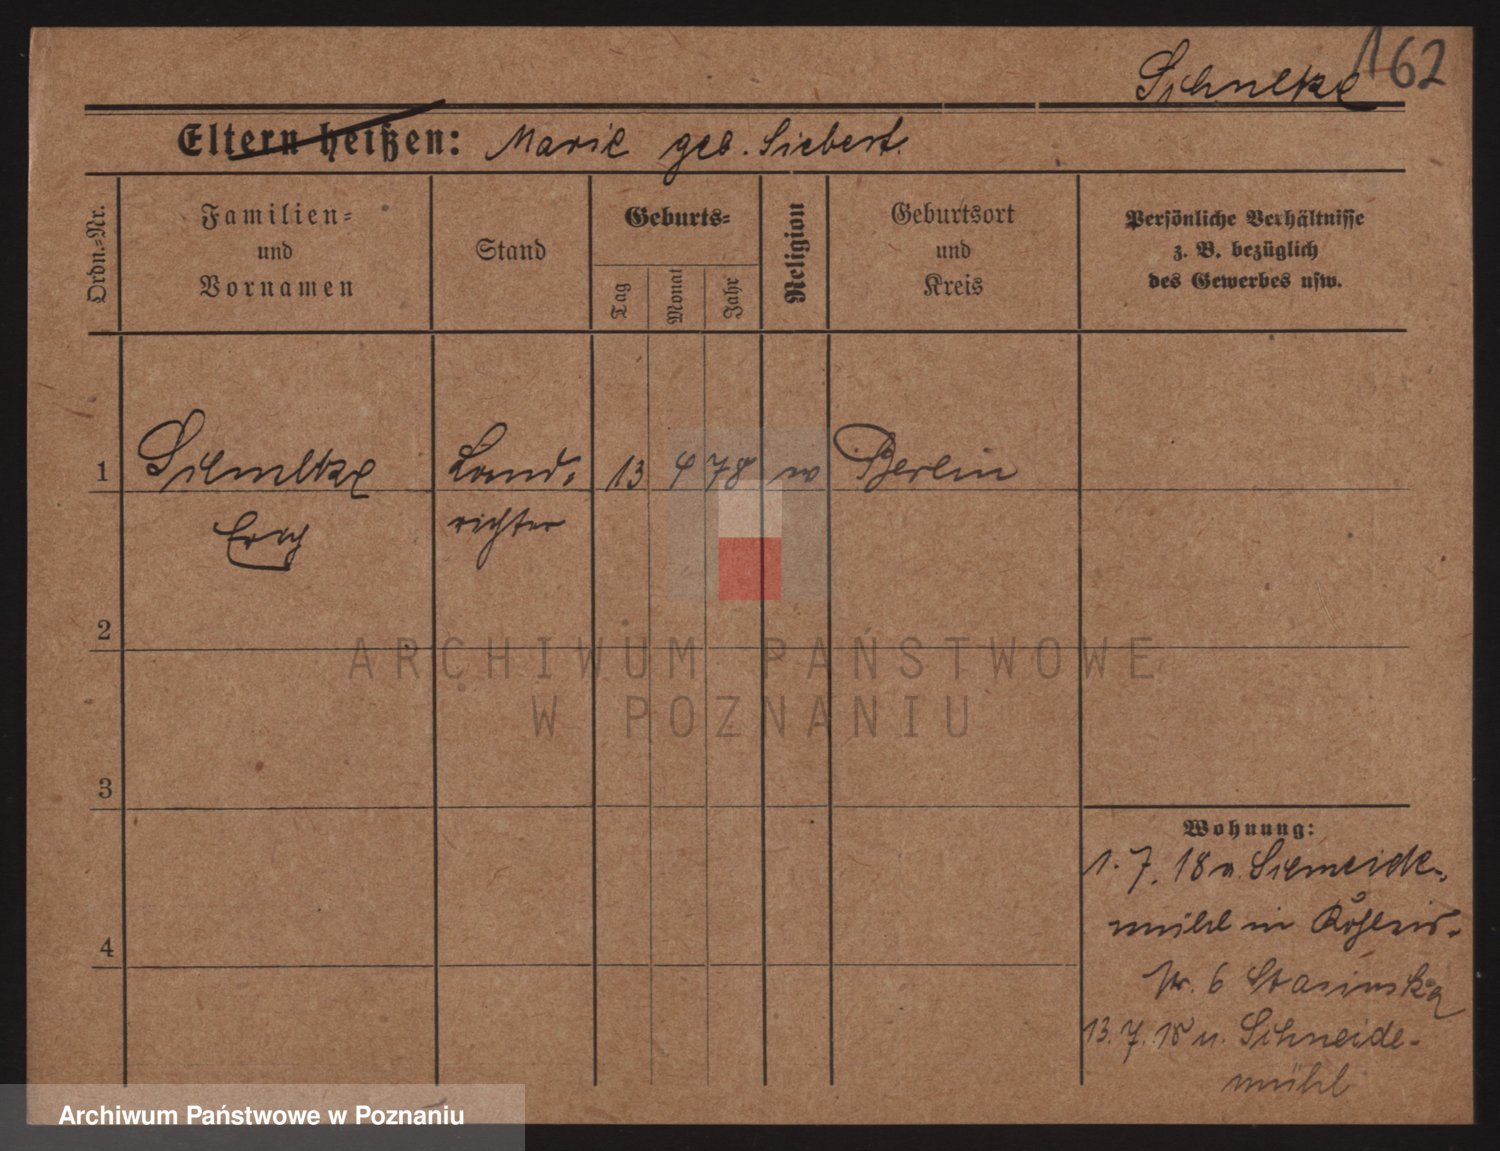 162
Schultze
Eltern heißen: Marie geb. Siebert.
Ordn.-Nr.
Familien-
und
Vornamen
Stand
Geburts-
Tag
Monat
Jahr
Religion
Geburtsort
und
Kreis
Persönliche Verhältnisse
z. B. bezüglich
des Gewerbes usw.
1
Land-
13
4
78
Berlin
Erich
richter
2
ARCHIWUM PAŃSTWOWE
W POZNANIU
3
Wohnung:
1. 7. 18 a. Schneide-
4
mühl in
Nr. 6 Stasinska
13. 7. 18 n. Schneide-
mühl
Archiwum Państwowe w Poznaniu